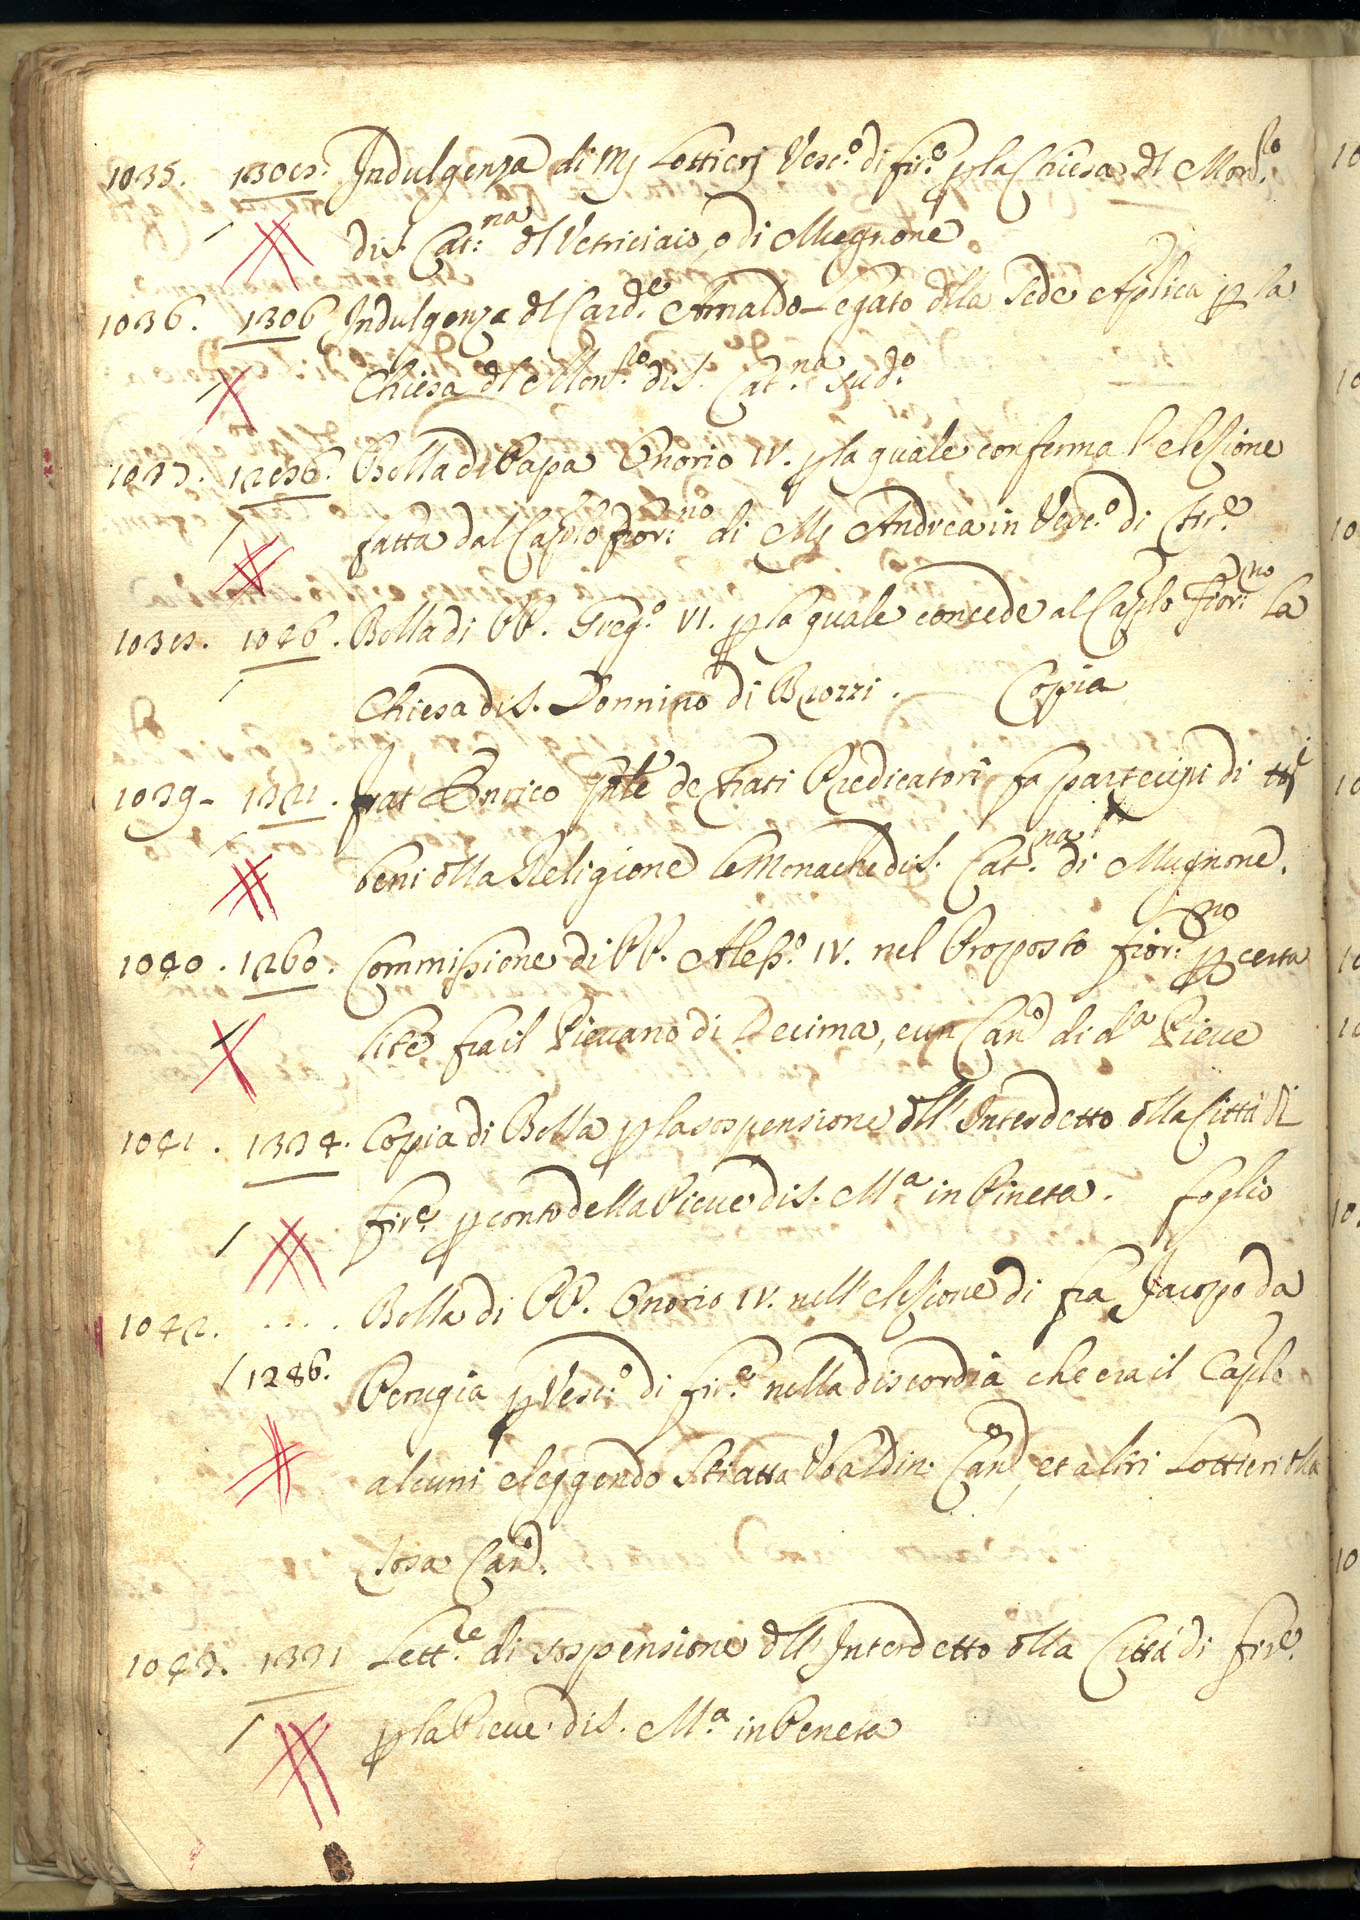 1035. 1308. Indulgenza di Mj Lottierj Vesc.o di fir.e p la Chiesa dl Mon.lo
di S. Cat.na dl Vetriciaio, o di Mugnone
1036. 1306 Indulgenza dl Card.e Arnaldo Legato dlla Sede Aplica p la
Chiesa dl Mon.lo di S. Cat.na Sud.o
1037. 1286. Bolla di Papa Onorio IV. p la quale conferma l'elezione
fatta dal Caplo fior.no di Mj Andrea in Vesc.o di Fir.e
1038. 1046. Bolla di PP. Greg.o VI. p la quale concede al Caplo fior.no la
Chiesa di S. Donnino di Brozzi. Copia
1039 - 1321. frat Enrico Gnle de Frati Predicatori fa partecipi di
beni dlla Religione le Monache di S. Cat.na di Mugnone.
1040. 1260. Commissione di PP. Aless.o IV. nel Proposto fior.no p certa
lite fra il Pievano di Decima, e un Can.o di d.a Pieve
1041. 1334. Copia di Bolla p la sospensione dll' Interdetto dlla Città di
fir.e p conto della Pieve di S. M.a in Pineta. foglio
1042. . . . . Bolla di PP. Onorio IV. nell' elezione di fra Jacopo da
1286. Perugia p Vesc.o di fir.e nella discordia che era il Caplo
alcuni eleggendo Schiatta Ubaldin: Can.o, et altri Lottieri dlla
Tosa Can.o.
1043. 1331 Lett.re di sospensione dll' Interdetto dlla Città di fir.e
p la Pieve di S. M.a in Peneta